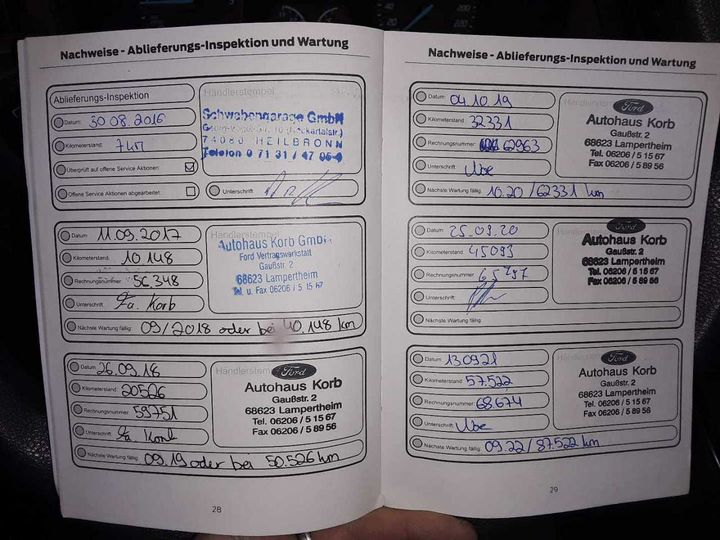 Nachweise - Ablieferungs-Inspektion und Wartung
Ablieferungs-Inspektion
Datum: 30.08.2016
Kilometerstand: 7 km
Überprüft auf offene Service Aktionen:
Offene Service Aktionen abgearbeitet:
Händlerstempel
Schwabengarage GmbH
74080 HEILBRONN
Telefon 0 71 31 / 47
Unterschrift:
Datum: 11.09.2017
Kilometerstand: 10 148
Rechnungsnummer: SC 348
Unterschrift: Fa. Korb
Händlerstempel
Autohaus Korb GmbH
Ford Vertragswerkstatt
Gaußstr. 2
68623 Lampertheim
Tel. u. Fax 06206 / 5 15 67
Nächste Wartung fällig: 09/2018 oder bei 40.148 km
Datum: 26.09.18
Kilometerstand: 20526
Rechnungsnummer: 59751
Unterschrift: Fa Korb
Ford
Autohaus Korb
Gaußstr. 2
68623 Lampertheim
Tel. 06206 / 5 15 67
Fax 06206 / 5 89 56
Nächste Wartung fällig: 09.19 oder bei 50.526 km
28
Nachweise - Ablieferungs-Inspektion und Wartung
Datum: 04.10.19
Kilometerstand: 32331
Rechnungsnummer: 62963
Unterschrift: Ube
Ford
Autohaus Korb
Gaußstr. 2
68623 Lampertheim
Tel. 06206 / 5 15 67
Fax 06206 / 5 89 56
Nächste Wartung fällig: 10.20 / 62331 km
Datum: 25.09.20
Kilometerstand: 45093
Rechnungsnummer:
Unterschrift:
Ford
Autohaus Korb
Gaußstr. 2
68623 Lampertheim
Tel. 06206 / 5 15 67
Fax 06206 / 5 89 56
Nächste Wartung fällig:
Datum: 130921
Kilometerstand: 57.522
Rechnungsnummer: 68674
Unterschrift: Ube
Ford
Autohaus Korb
Gaußstr. 2
68623 Lampertheim
Tel. 06206 / 5 15 67
Fax 06206 / 5 89 56
Nächste Wartung fällig: 09.22 / 87.522 km
29